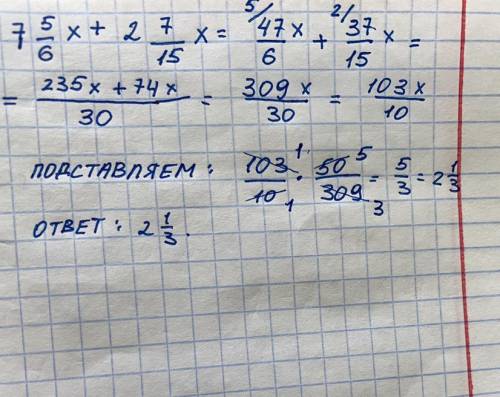 7 5/6 x + 2 7/15 x = 5/ 47x/6 + 2/ 37/15 x =
= 235x + 74x / 30 = 309x/30 = 103x/10
ПОДСТАВЛЯЕМ: 103/10 · 50/309 = 5/3 = 2 1/3 1 5 1 3
ОТВЕТ: 2 1/3.